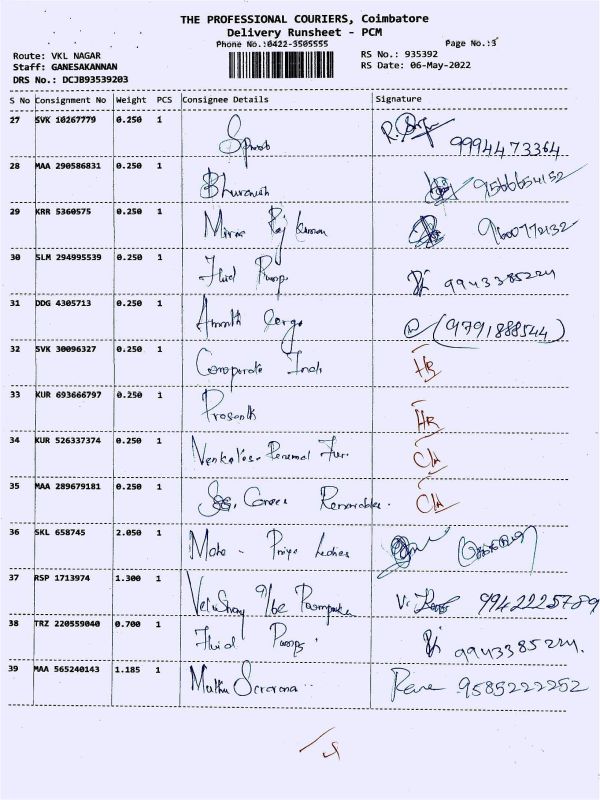 THE PROFESSIONAL COURIERS, Coimbatore
Delivery Runsheet - PCM
Phone No.:0422-3505555
Page No.:3
Route: VKL NAGAR
RS No.: 935392
Staff: GANESAKANNAN
RS Date: 06-May-2022
DRS No.: DCJB93539203
S No Consignment No Weight PCS Consignee Details Signature
27 SVK 10267779 0.250 1 9994473364
28 MAA 290586831 0.250 1 9566654152
29 KRR 5360575 0.250 1 9600772132
30 SLM 294995539 0.250 1 Fluid Pumps 9943385224
31 DDG 4305713 0.250 1 Cargo (9791888544)
32 SVK 30096327 0.250 1 Corporate Inds
33 KUR 693666797 0.250 1 Prasanth
34 KUR 526337374 0.250 1
35 MAA 289679181 0.250 1 Renewables
36 SKL 658745 2.050 1 Priya Ladies
37 RSP 1713974 1.300 1 9942225789
38 TRZ 220559040 0.700 1 Fluid Pumps 9943385224.
39 MAA 565240143 1.185 1 9585222252